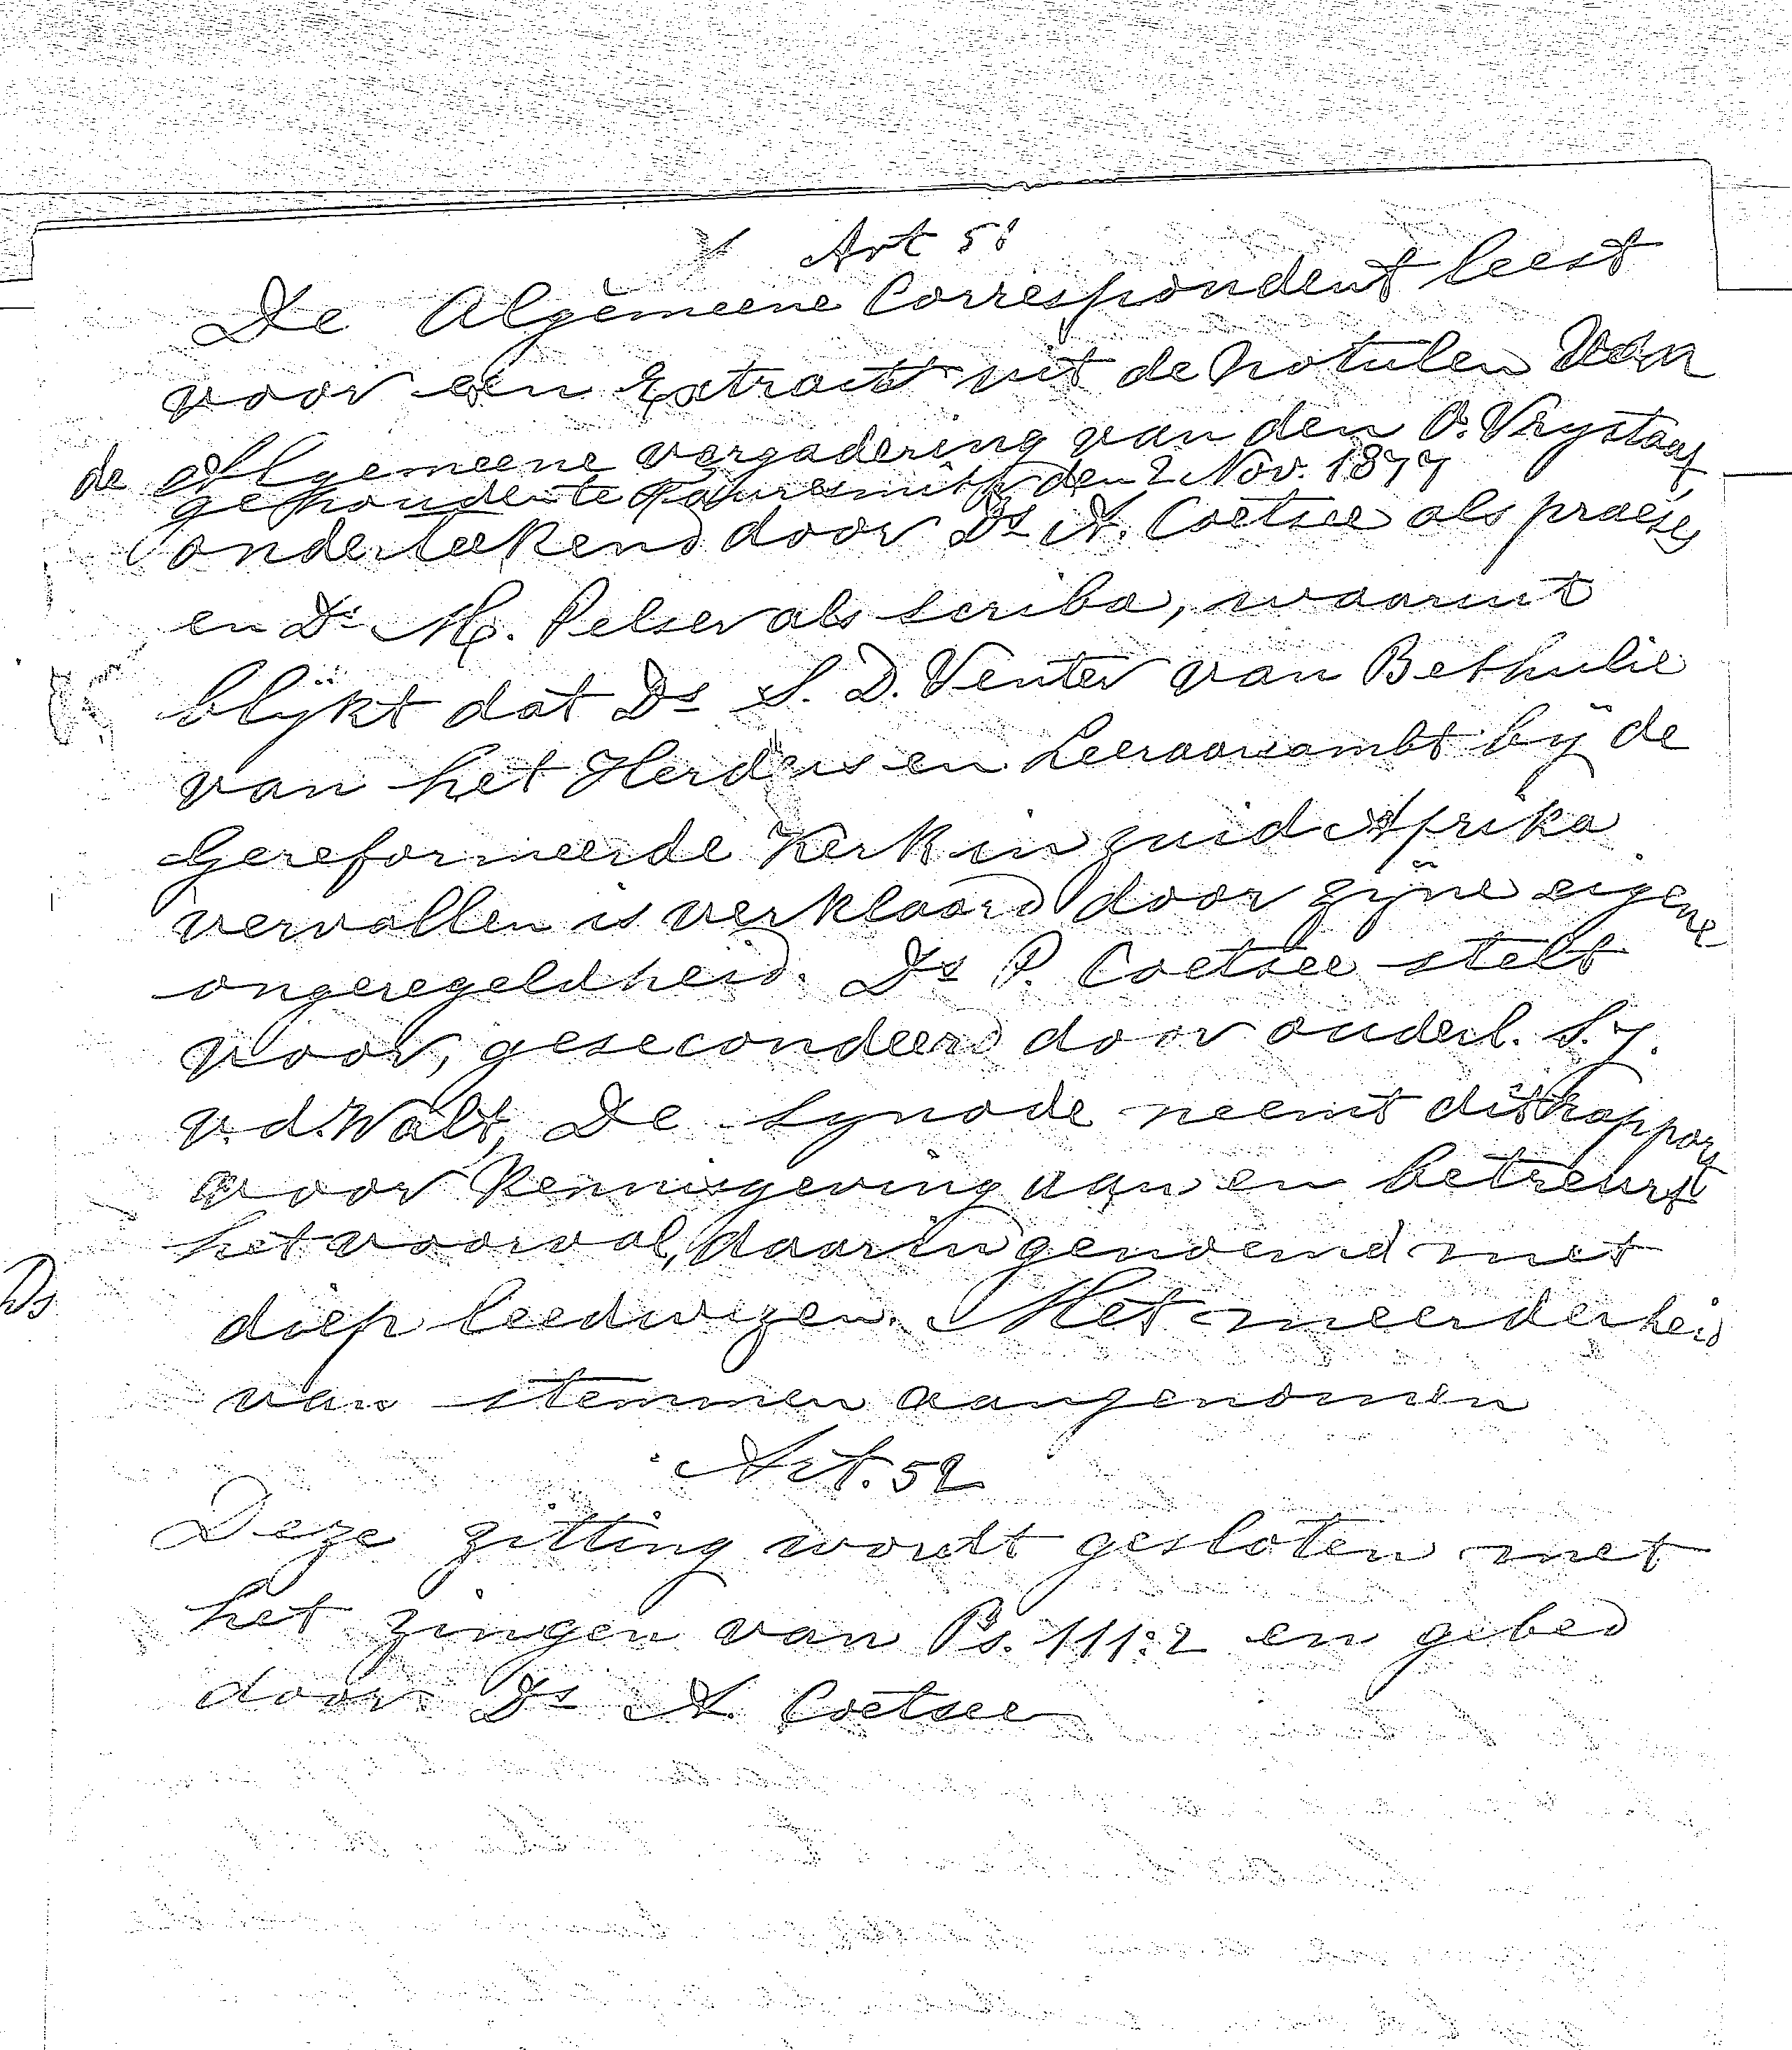 Art 51
De Algemeene Correspondent leest
voor een Extract uit de Notulen van
de Algemeene vergadering van den O. Vrystaat
gehouden te Fauresmith den 2 Nov. 1877
onderteekend door Ds A. Coetsee als praeses
en Ds M. Pelser als scriba, waaruit
blijkt dat Ds S. D. Venter van Bethulie
van het Herders en Leeraarsambt bij de
Gereformeerde Kerk in zuid Afrika
vervallen is verklaard door zijne eigene
ongeregeldheid. Ds P. Coetsee stelt
voor, gesecondeerd door ouderl. S. J.
v. d. Walt, De Synode neemt dit rapport
voor kennisgeving aan en betreurt
het voorval, daarin genoemd met
diep leedwezen. Met meerderheid
van stemmen aangenomen
Art. 52
Deze zitting wordt gesloten met
het zingen van Ps. 111:2 en gebed
door Ds A. Coetsee
Ds